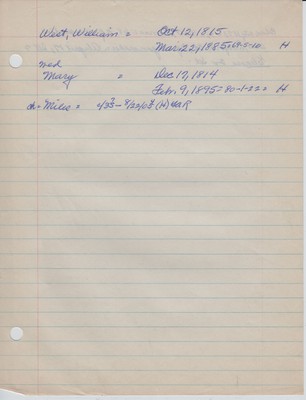 West, William = Oct 12, 1815
Mar. 22, 1885=69-5-10 H
med
Mary " Dec 17, 1814
Feb. 9, 1895=80-1-22= H
ch= Miles = (H) GAR